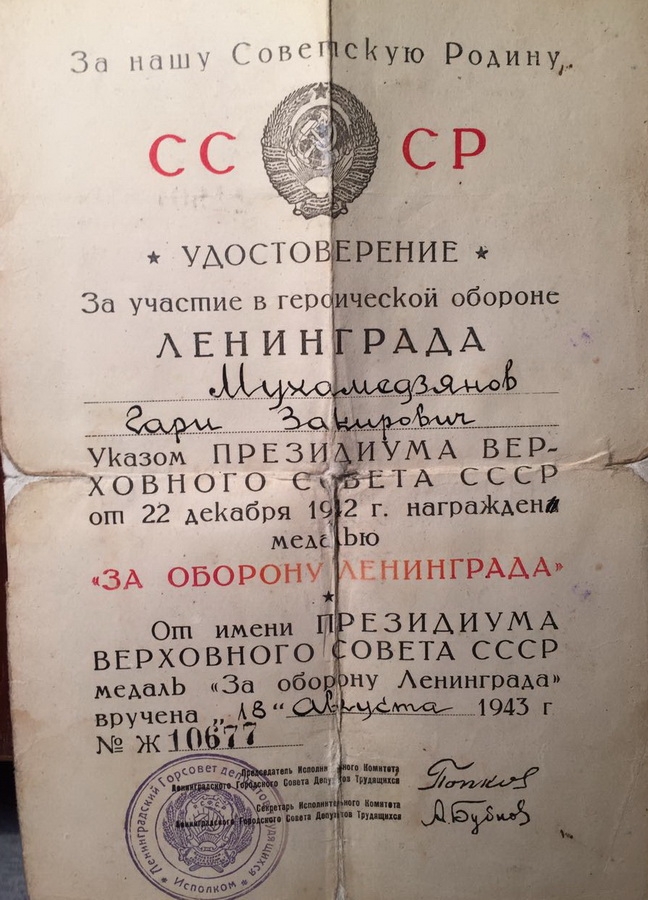 За нашу Советскую Родину
СССР
★ УДОСТОВЕРЕНИЕ ★
За участие в героической обороне
ЛЕНИНГРАДА
Мухамедзянов
Гари Закирович
Указом ПРЕЗИДИУМА ВЕР-
ХОВНОГО СОВЕТА СССР
от 22 декабря 1942 г. награжден
медалью
«ЗА ОБОРОНУ ЛЕНИНГРАДА»
★
От имени ПРЕЗИДИУМА
ВЕРХОВНОГО СОВЕТА СССР
медаль «За оборону Ленинграда»
вручена „18" Августа 1943 г
№ Ж 10677
Председатель Исполнительного Комитета
Ленинградского Городского Совета Депутатов Трудящихся
Попков
Секретарь Исполнительного Комитета
Ленинградского Городского Совета Депутатов Трудящихся
А.Бубнов
Ленинградский Горсовет депутатов трудящихся
Исполком
РСФСР